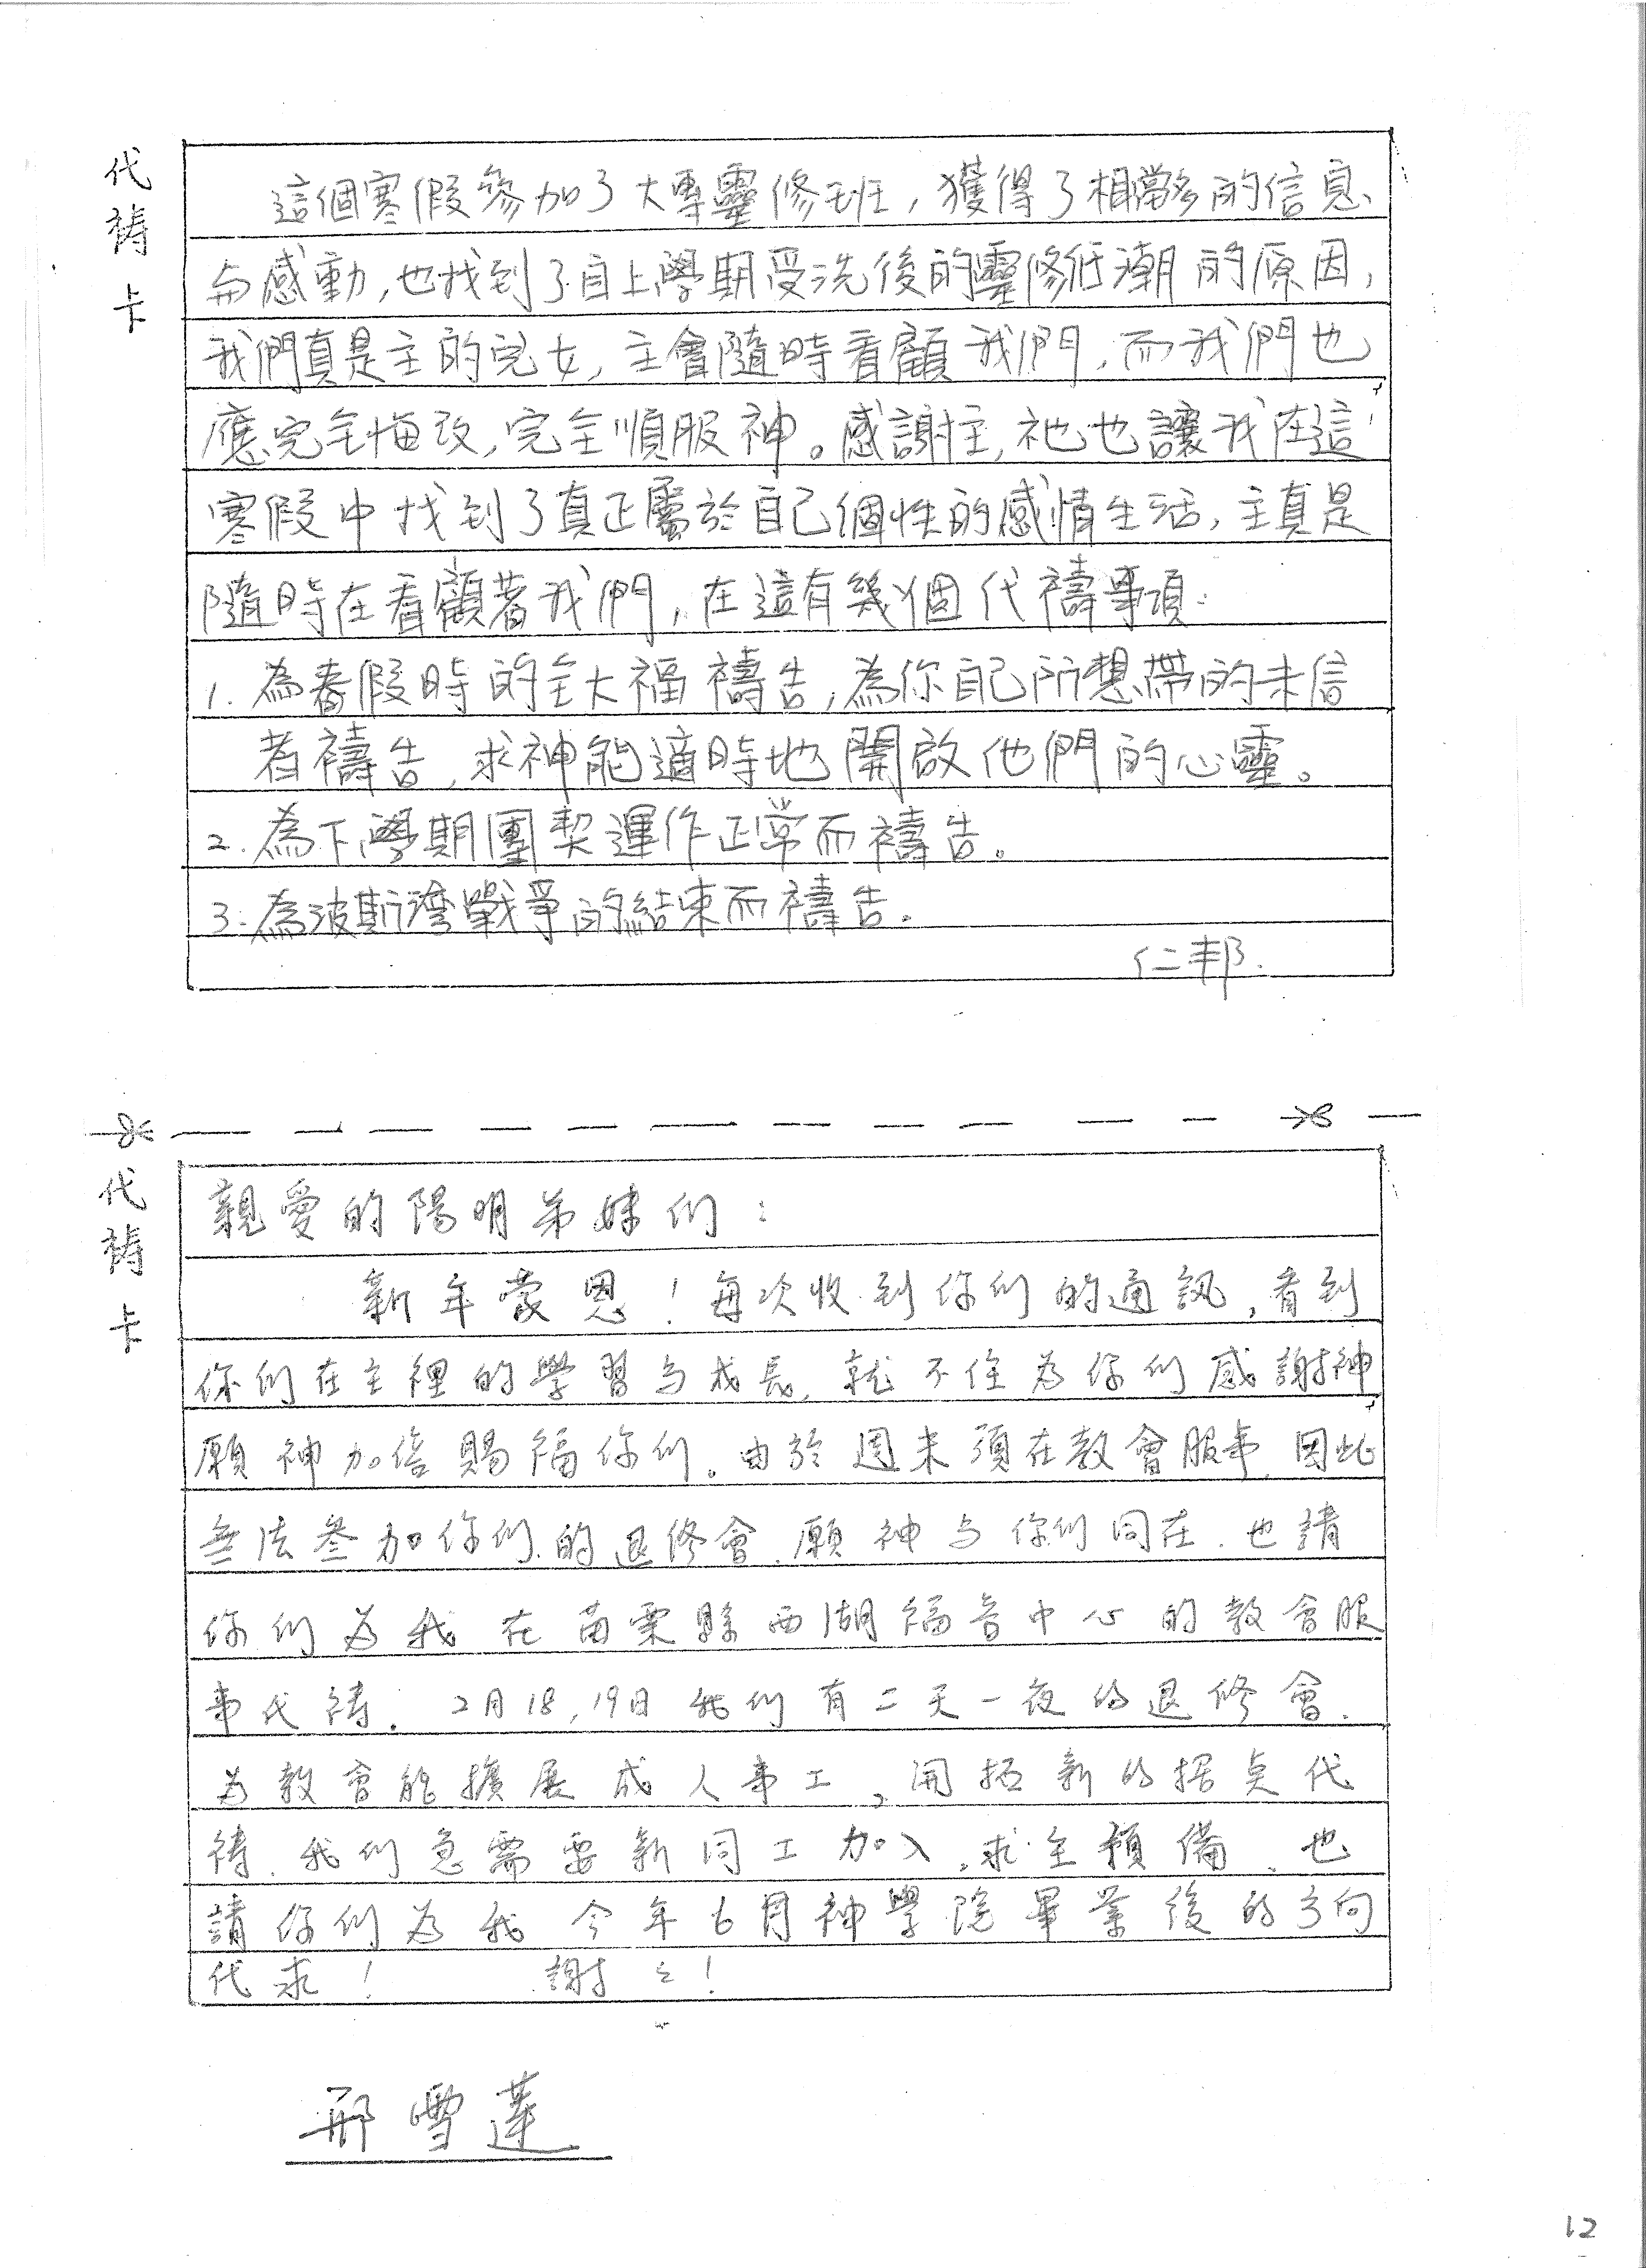 代禱卡
這個寒假參加了大專靈修班，獲得了相當多的信息、
與感動，也找到了自上學期受洗後的靈修低潮的原因，
我們真是主的兒女，主會隨時看顧我們，而我們也
應完全悔改，完全順服神。感謝主，祂也讓我在這
寒假中找到了真正屬於自己個性的感情生活，主真是
隨時在看顧著我們，在這有幾個代禱事項：
1. 為春假時的全大福禱告，為你自己所想帶的未信
者禱告，求神能適時地開啟他們的心靈。
2. 為下學期團契運作正常而禱告。
3. 為波斯灣戰爭的結束而禱告。
仁邦.
代禱卡
親愛的陽明弟妹们：
新年蒙恩！每次收到你们的通訊，看到
你们在主裡的學習与成長，就不住為你们感謝神
願神加倍賜福你们。由於週末須在教會服事，因此
無法參加你们的退修會，願神与你们同在．也請
你们為我在苗栗縣西湖福音中心的教會服
事代禱．2月18,19日我们有二天一夜的退修會．
為教會能擴展成人事工，開拓新的据点代
禱．我们急需要新同工加入，求主預備．也
請你们為我今年6月神學院畢業後的方向
代求！ 謝々！
邢雪蓮
12